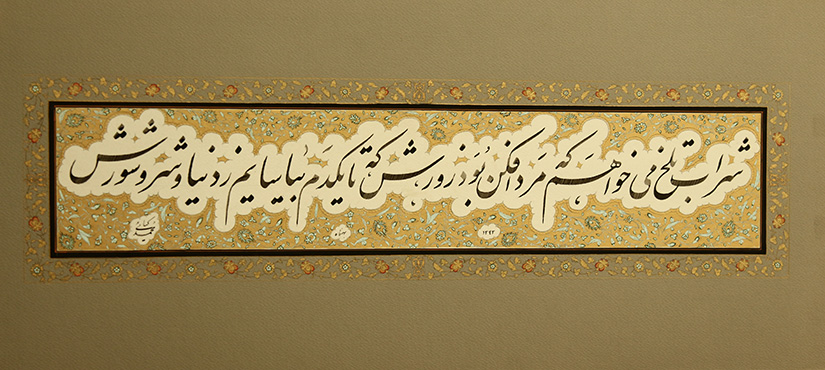 شراب تلخ می خواهم که مردافکن بود زورش که تا یکدم بیاسایم ز دنیا و شر و شورش
۱۳۹۲